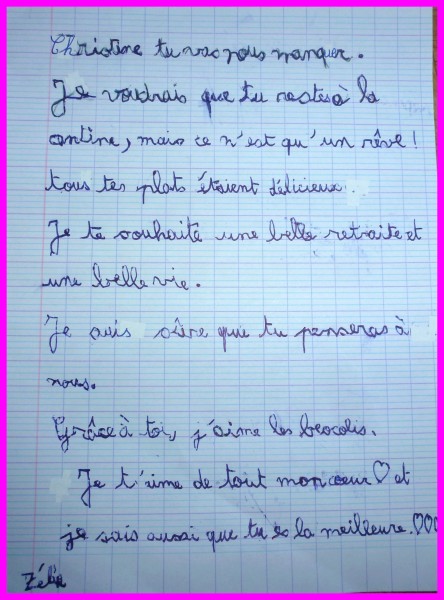 Christine tu vas nous manquer.
Je voudrais que tu restes à la
cantine, mais ce n'est qu'un rêve!
tous tes plats étaient délicieux.
Je te souhaite une belle retraite et
une belle vie.
Je suis sûre que tu penseras à
nous.
Grâce à toi, j'aime les brocolis.
Je t'aime de tout mon coeur♡ et
je sais aussi que tu es la meilleure.♡♡♡
Zélie